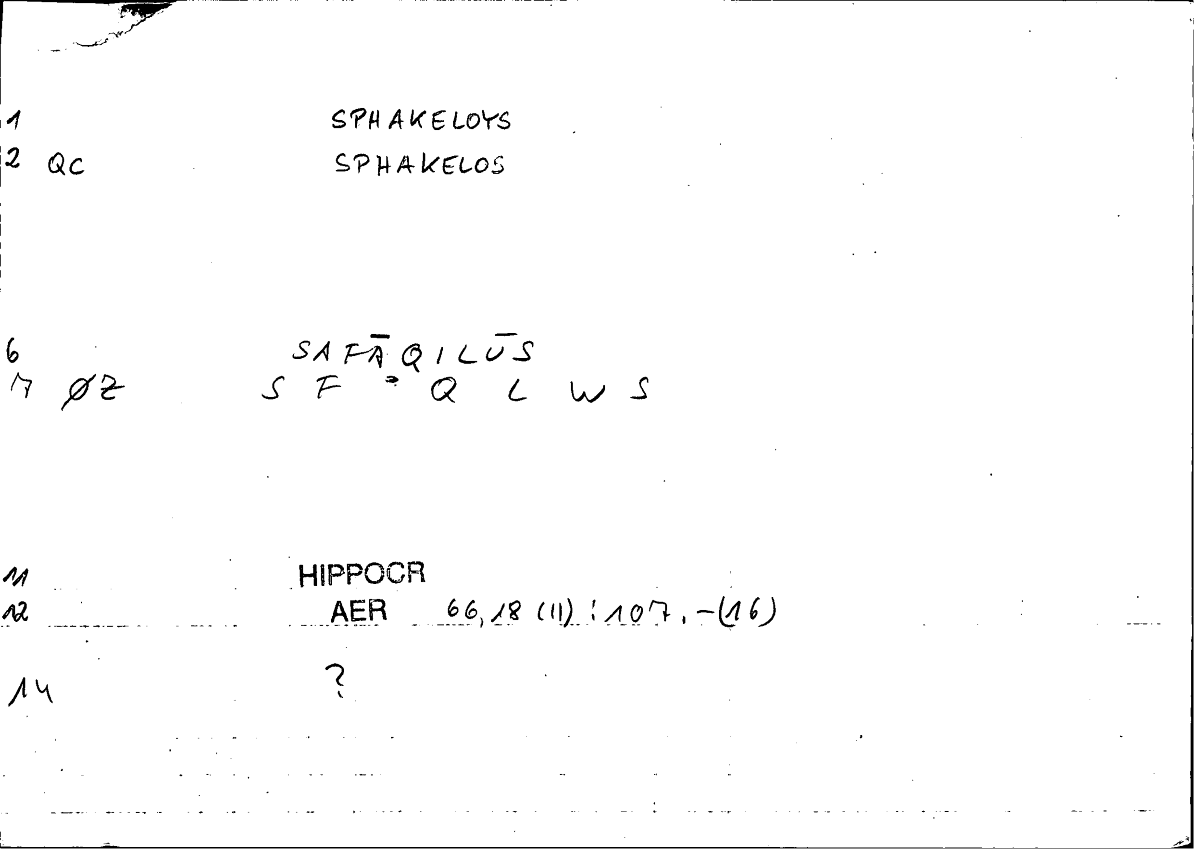 1 SPHAKELOYS
2 QC SPHAKELOS
6 SAFĀQILŪS
7 ØZ S F ʾ Q L W S
11 HIPPOCR
12 AER 66,18 (11) : 107, -(16)
14 ?